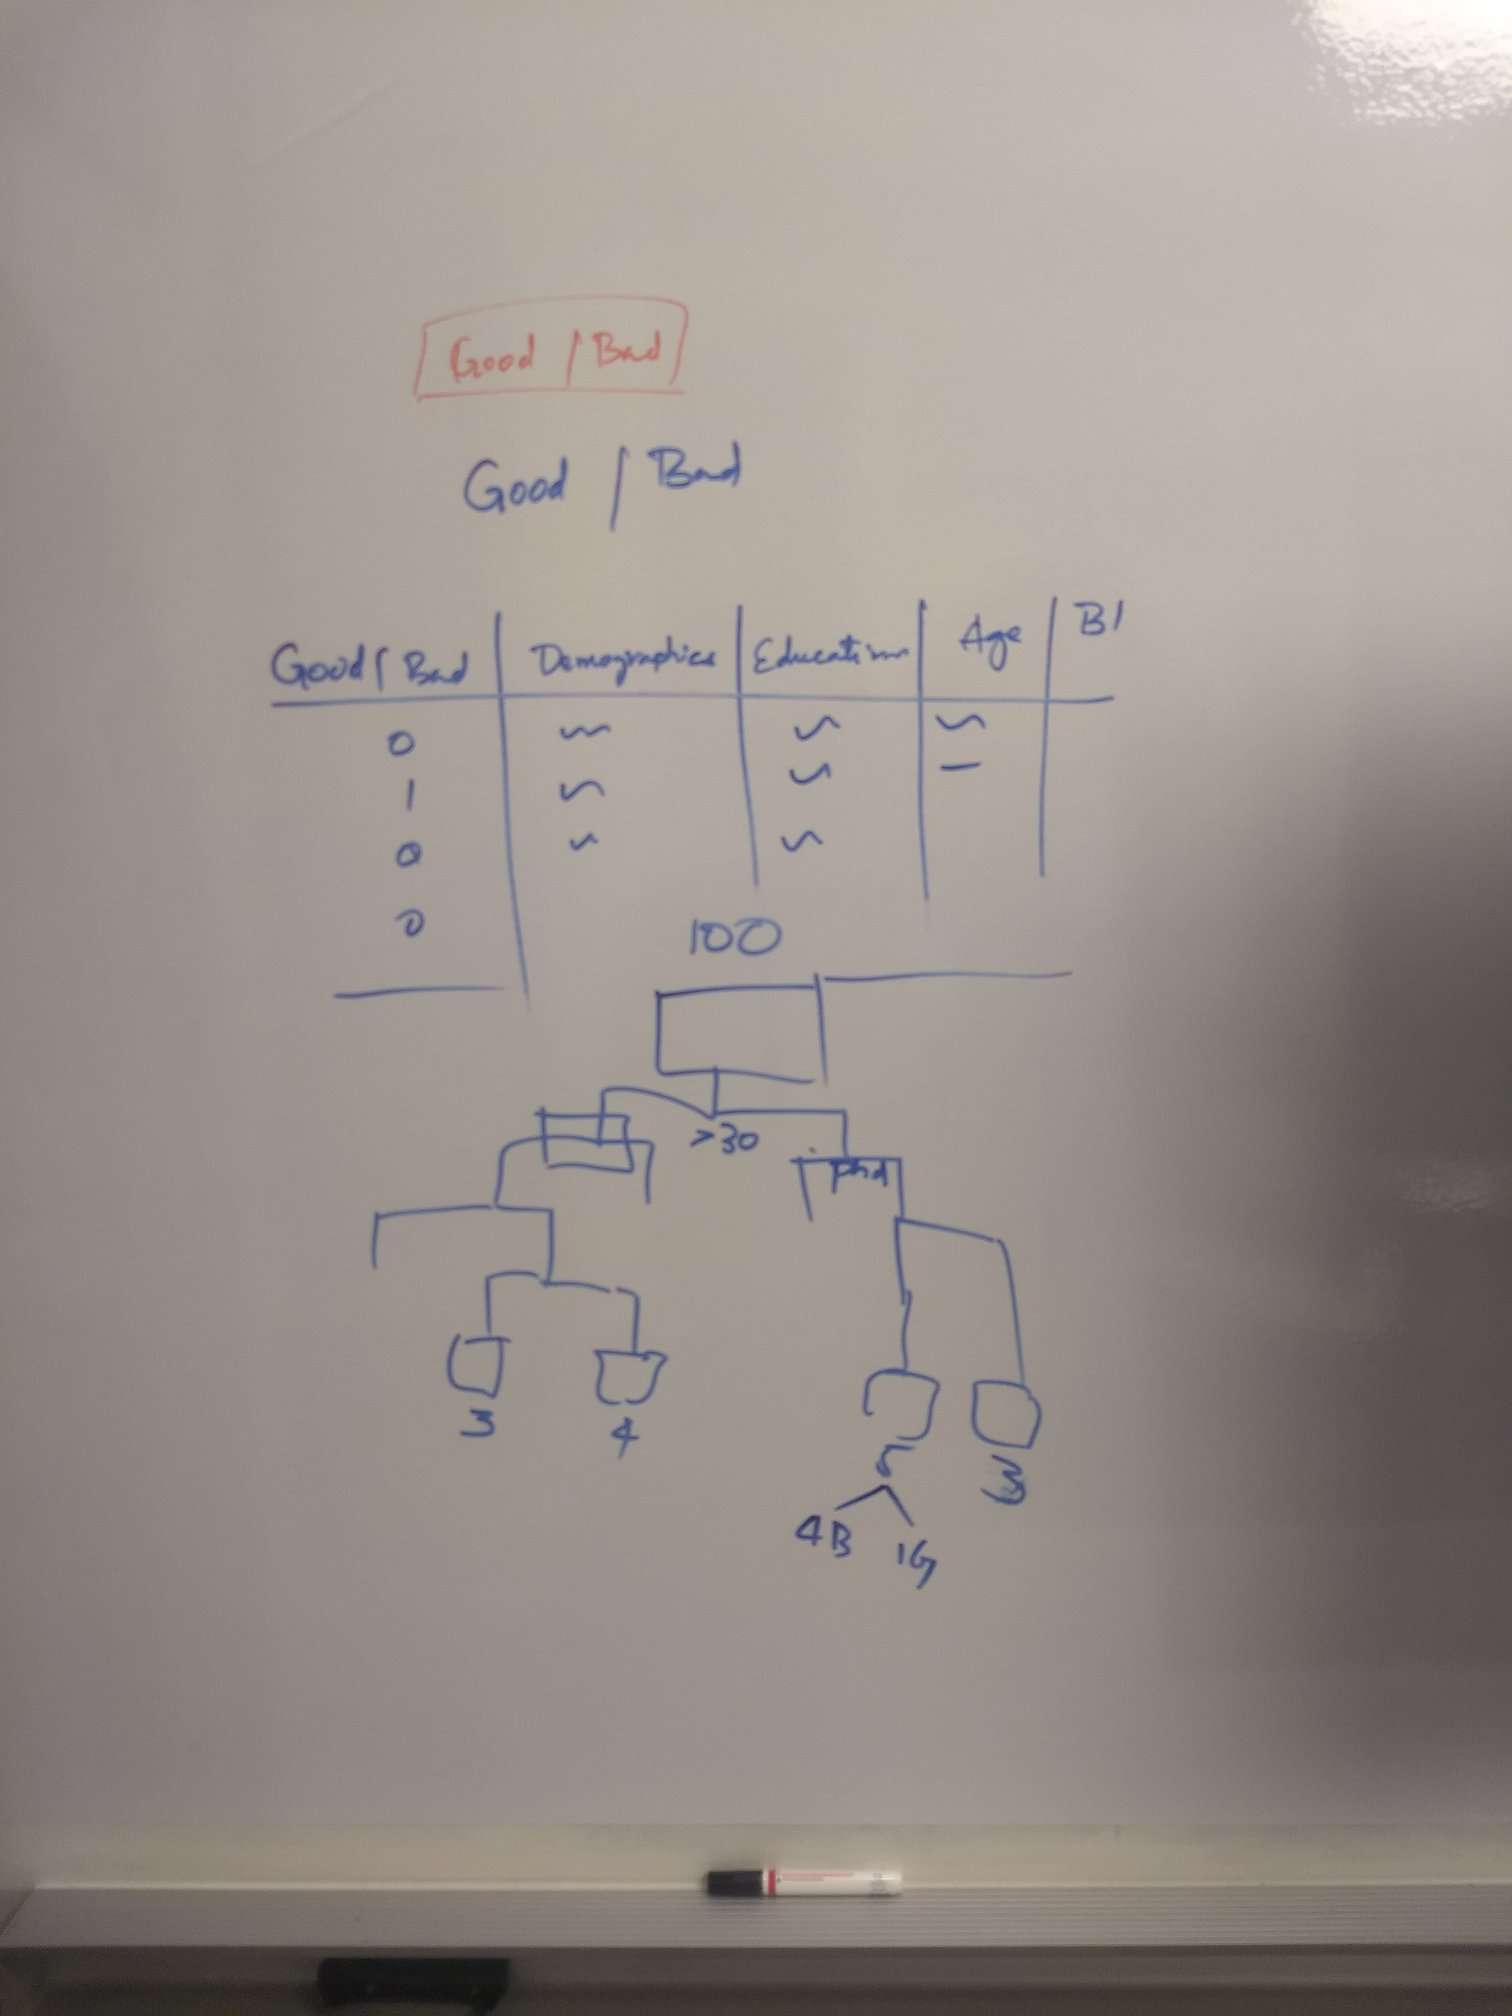 Good / Bad
Good / Bad
Good / Bad | Demographics | Education | Age | B1
0
1
0
0
100
>30
phd
3 4
5
4B 1G